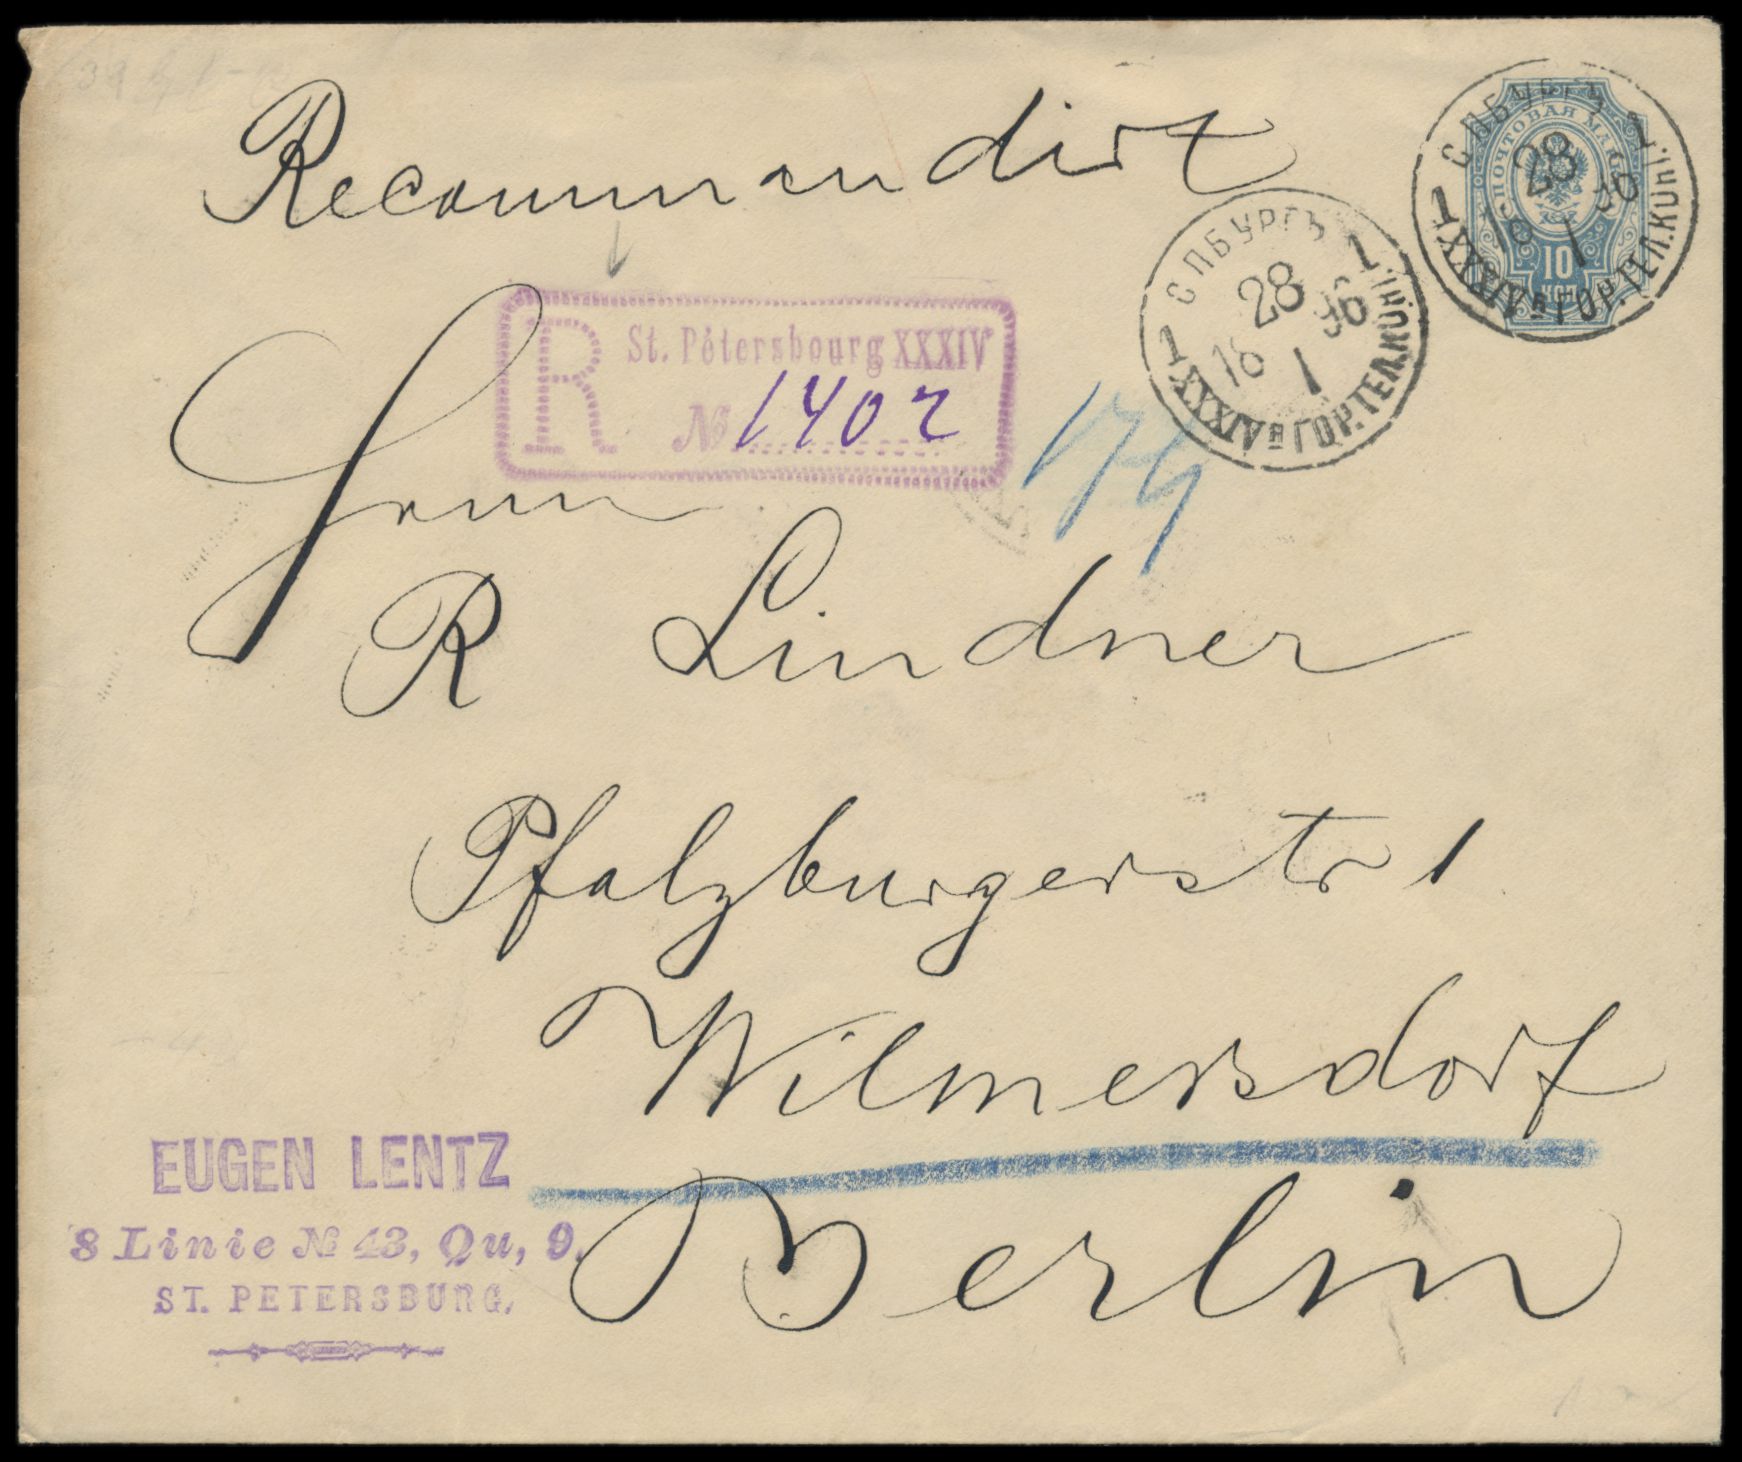 Recommandirt
ПОЧТОВАЯ МАРКА
10
КОП.
С ПБУРГЪ
28
96
1
1 XXXIV П. ГОР. ТЕЛ. КОНТ. 1
С ПБУРГЪ
28
96
16
1
1 XXXIV П. ГОР. ТЕЛ. КОНТ. 1
R St. Pétersbourg XXXIV
№ 1402
174
Herrn
R Lindner
Pfalzburgerstr 1
Wilmersdorf
Berlin
EUGEN LENTZ
8 Linie № 43, Qu, 9.
ST. PETERSBURG.